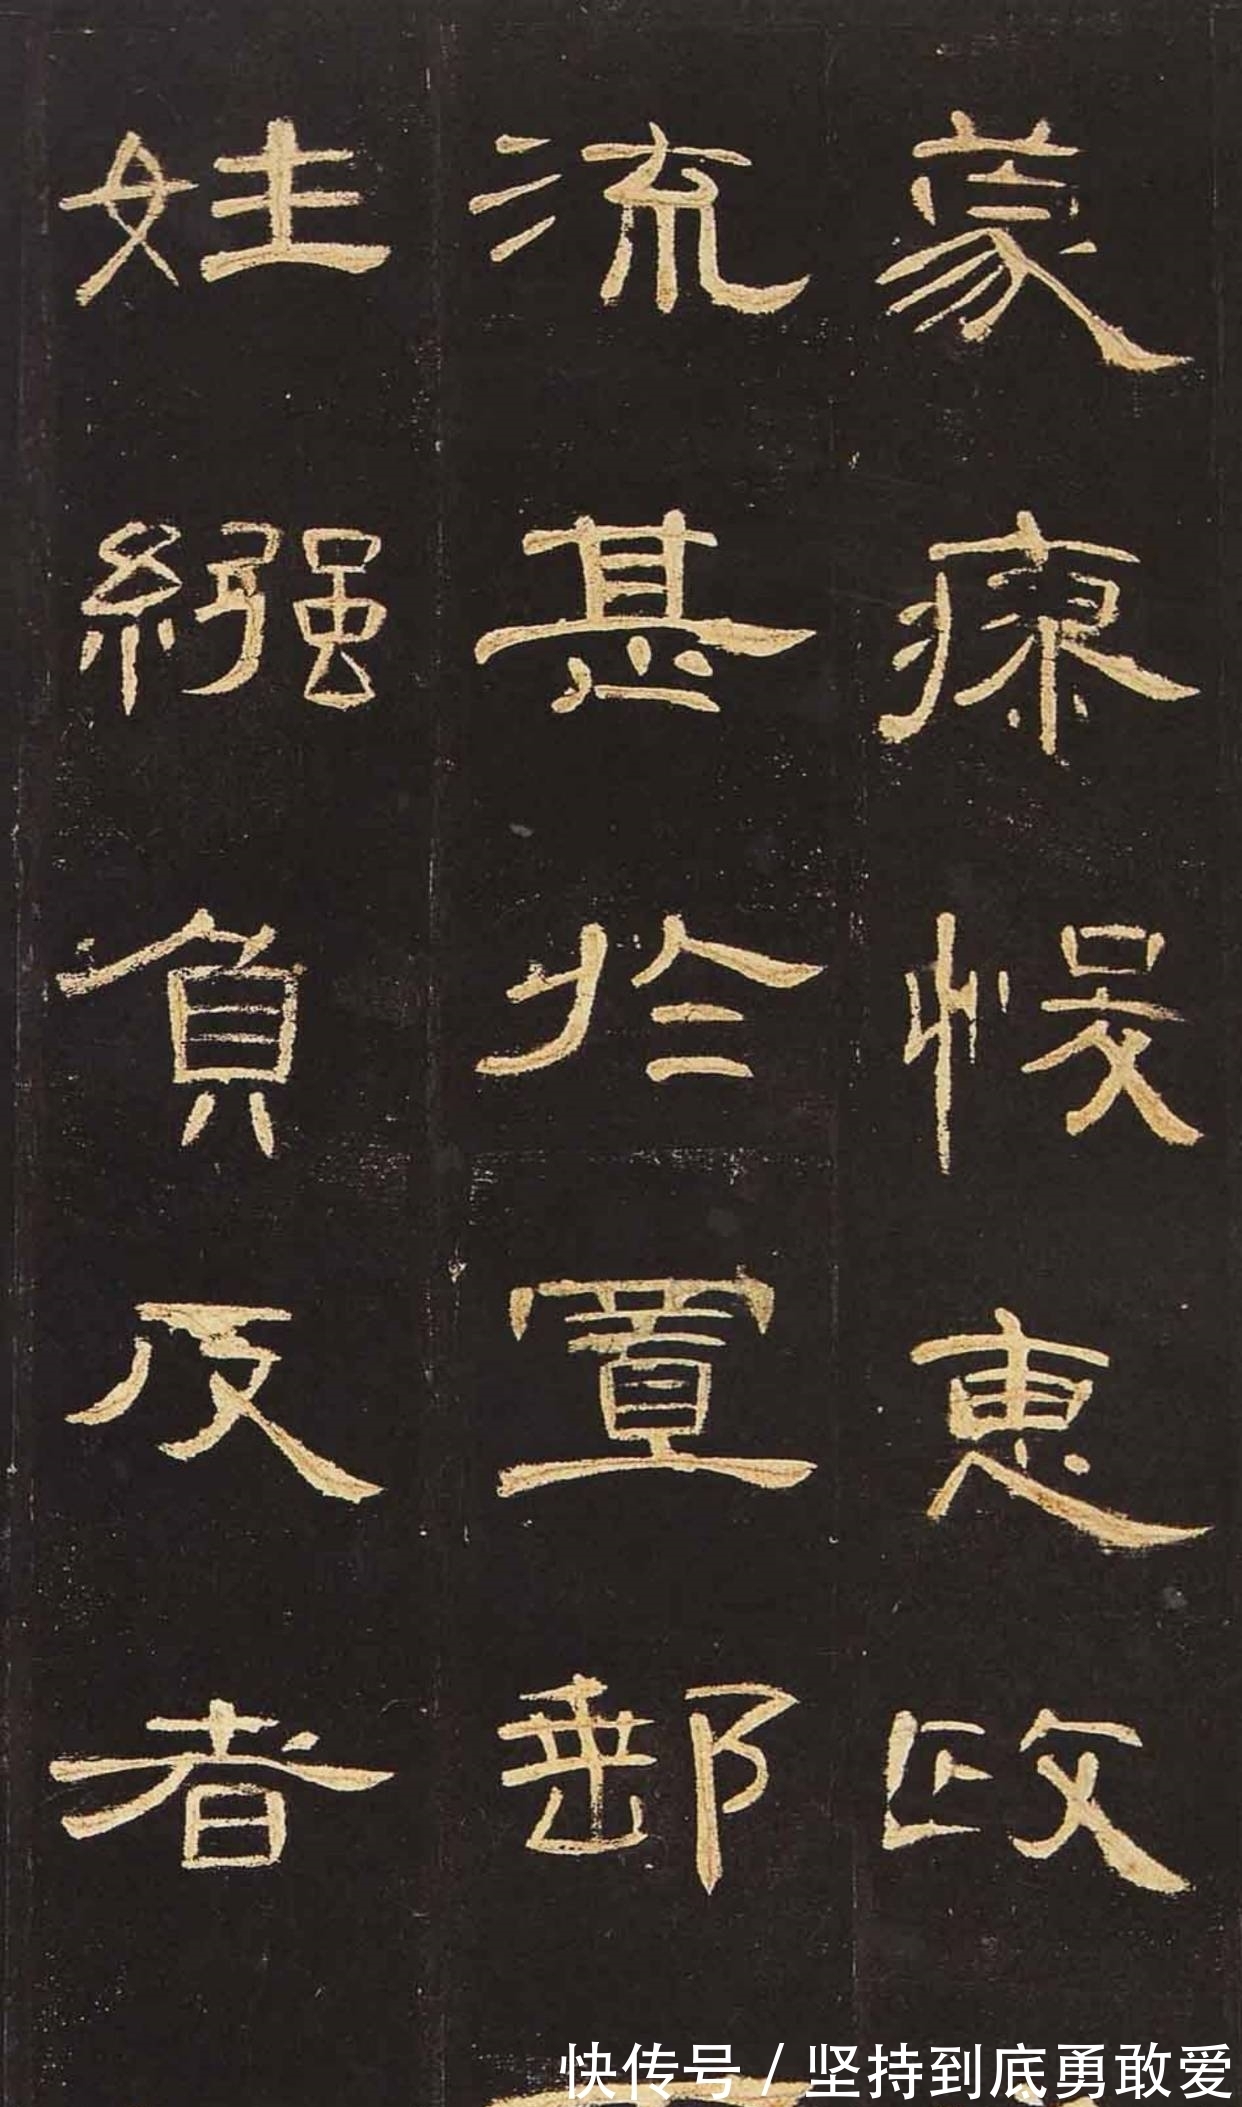 蒙瘳悛惠政
流甚於置郵
姓繦負反者
快传号/坚持到底勇敢爱